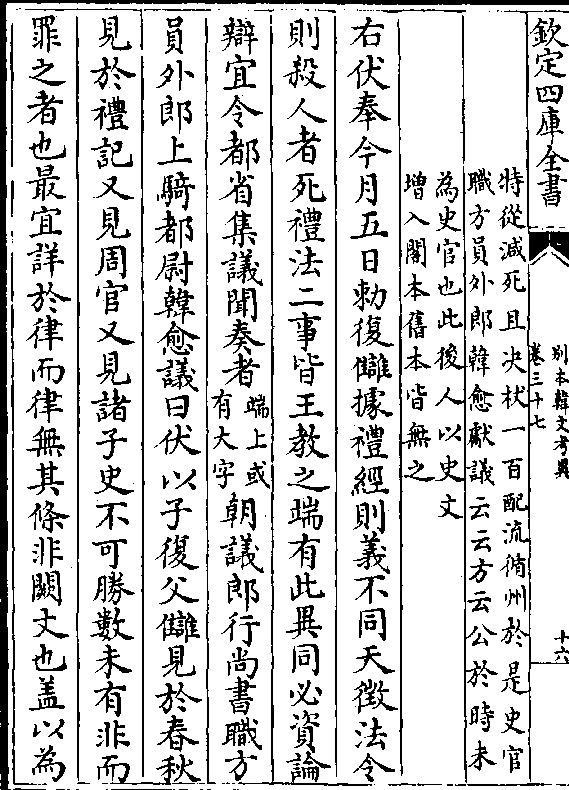 欽定四庫全書
別本韓文考異
卷三十七
十六
特從減死且决杖一百配流循州於是史官
職方員外郎韓愈獻議云云方云公於時未
為史官也此後人以史文
增入閣本舊本皆無之
右伏奉今月五日勑復讎據禮經則義不同天徵法令
則殺人者死禮法二事皆王教之端有此異同必資論
辯宜令都省集議聞奏者端上或有大字朝議郎行尚書職方
員外郎上騎都尉韓愈議曰伏以子復父讎見於春秋
見於禮記又見周官又見諸子史不可勝數未有非而
罪之者也最宜詳於律而律無其條非闕文也盖以為